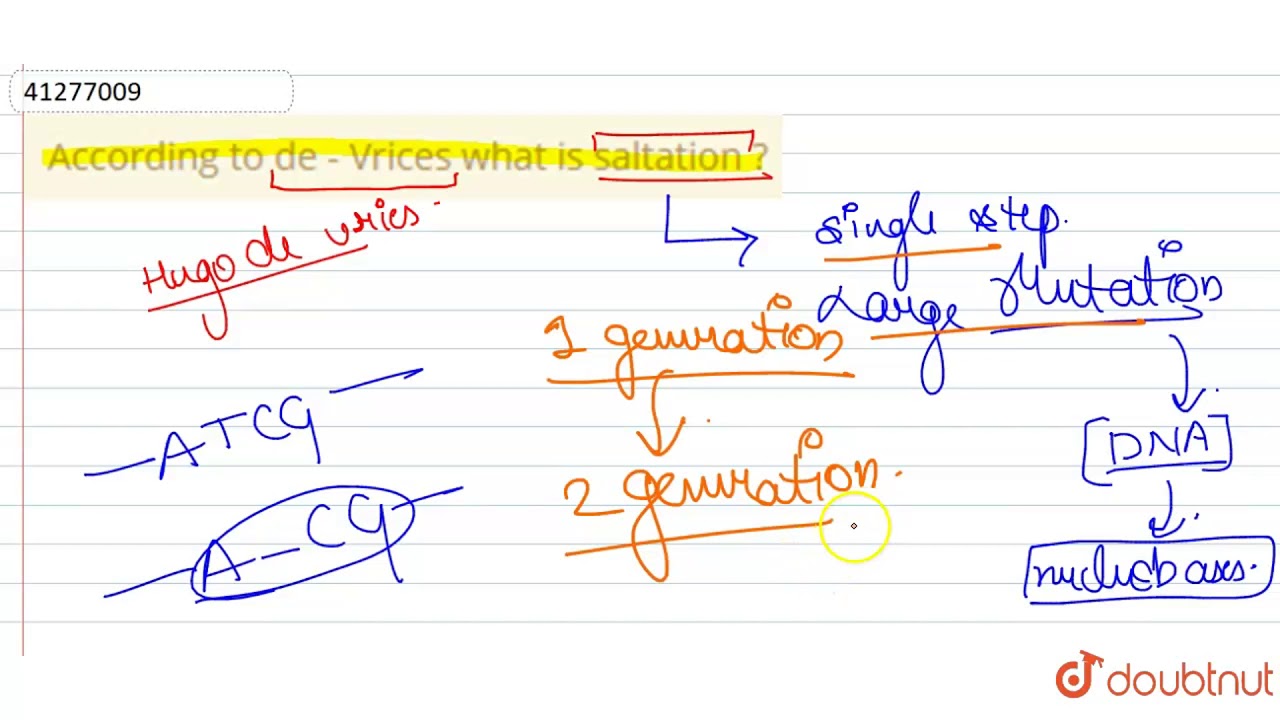 41277009
According to de - Vrices what is saltation ?
Hugo de vries.
single step.
Large Mutation
1 generation
2 generation.
ATCG
A-CG
[DNA]
nucleobases.
doubtnut